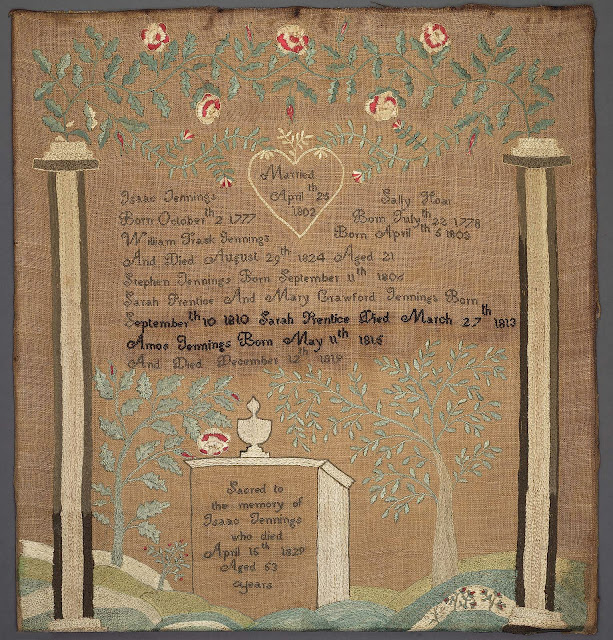 Married
April 25th
1802
Isaac Jennings
Born October th 2 1777
Sally Hoar
Born July th 22 1778
William Trask Jennings
Born April th 5 1803
And Died August 29th 1824 Aged 21
Stephen Jennings Born September 11th 1805
Sarah Prentice And Mary Crawford Jennings Born
September th 10 1810 Sarah Prentice Died March 27th 1813
Amos Jennings Born May 11th 1815
And Died December 12th
Sacred to
the memory of
Isaac Jennings
who died
April 15th
Aged 53
years